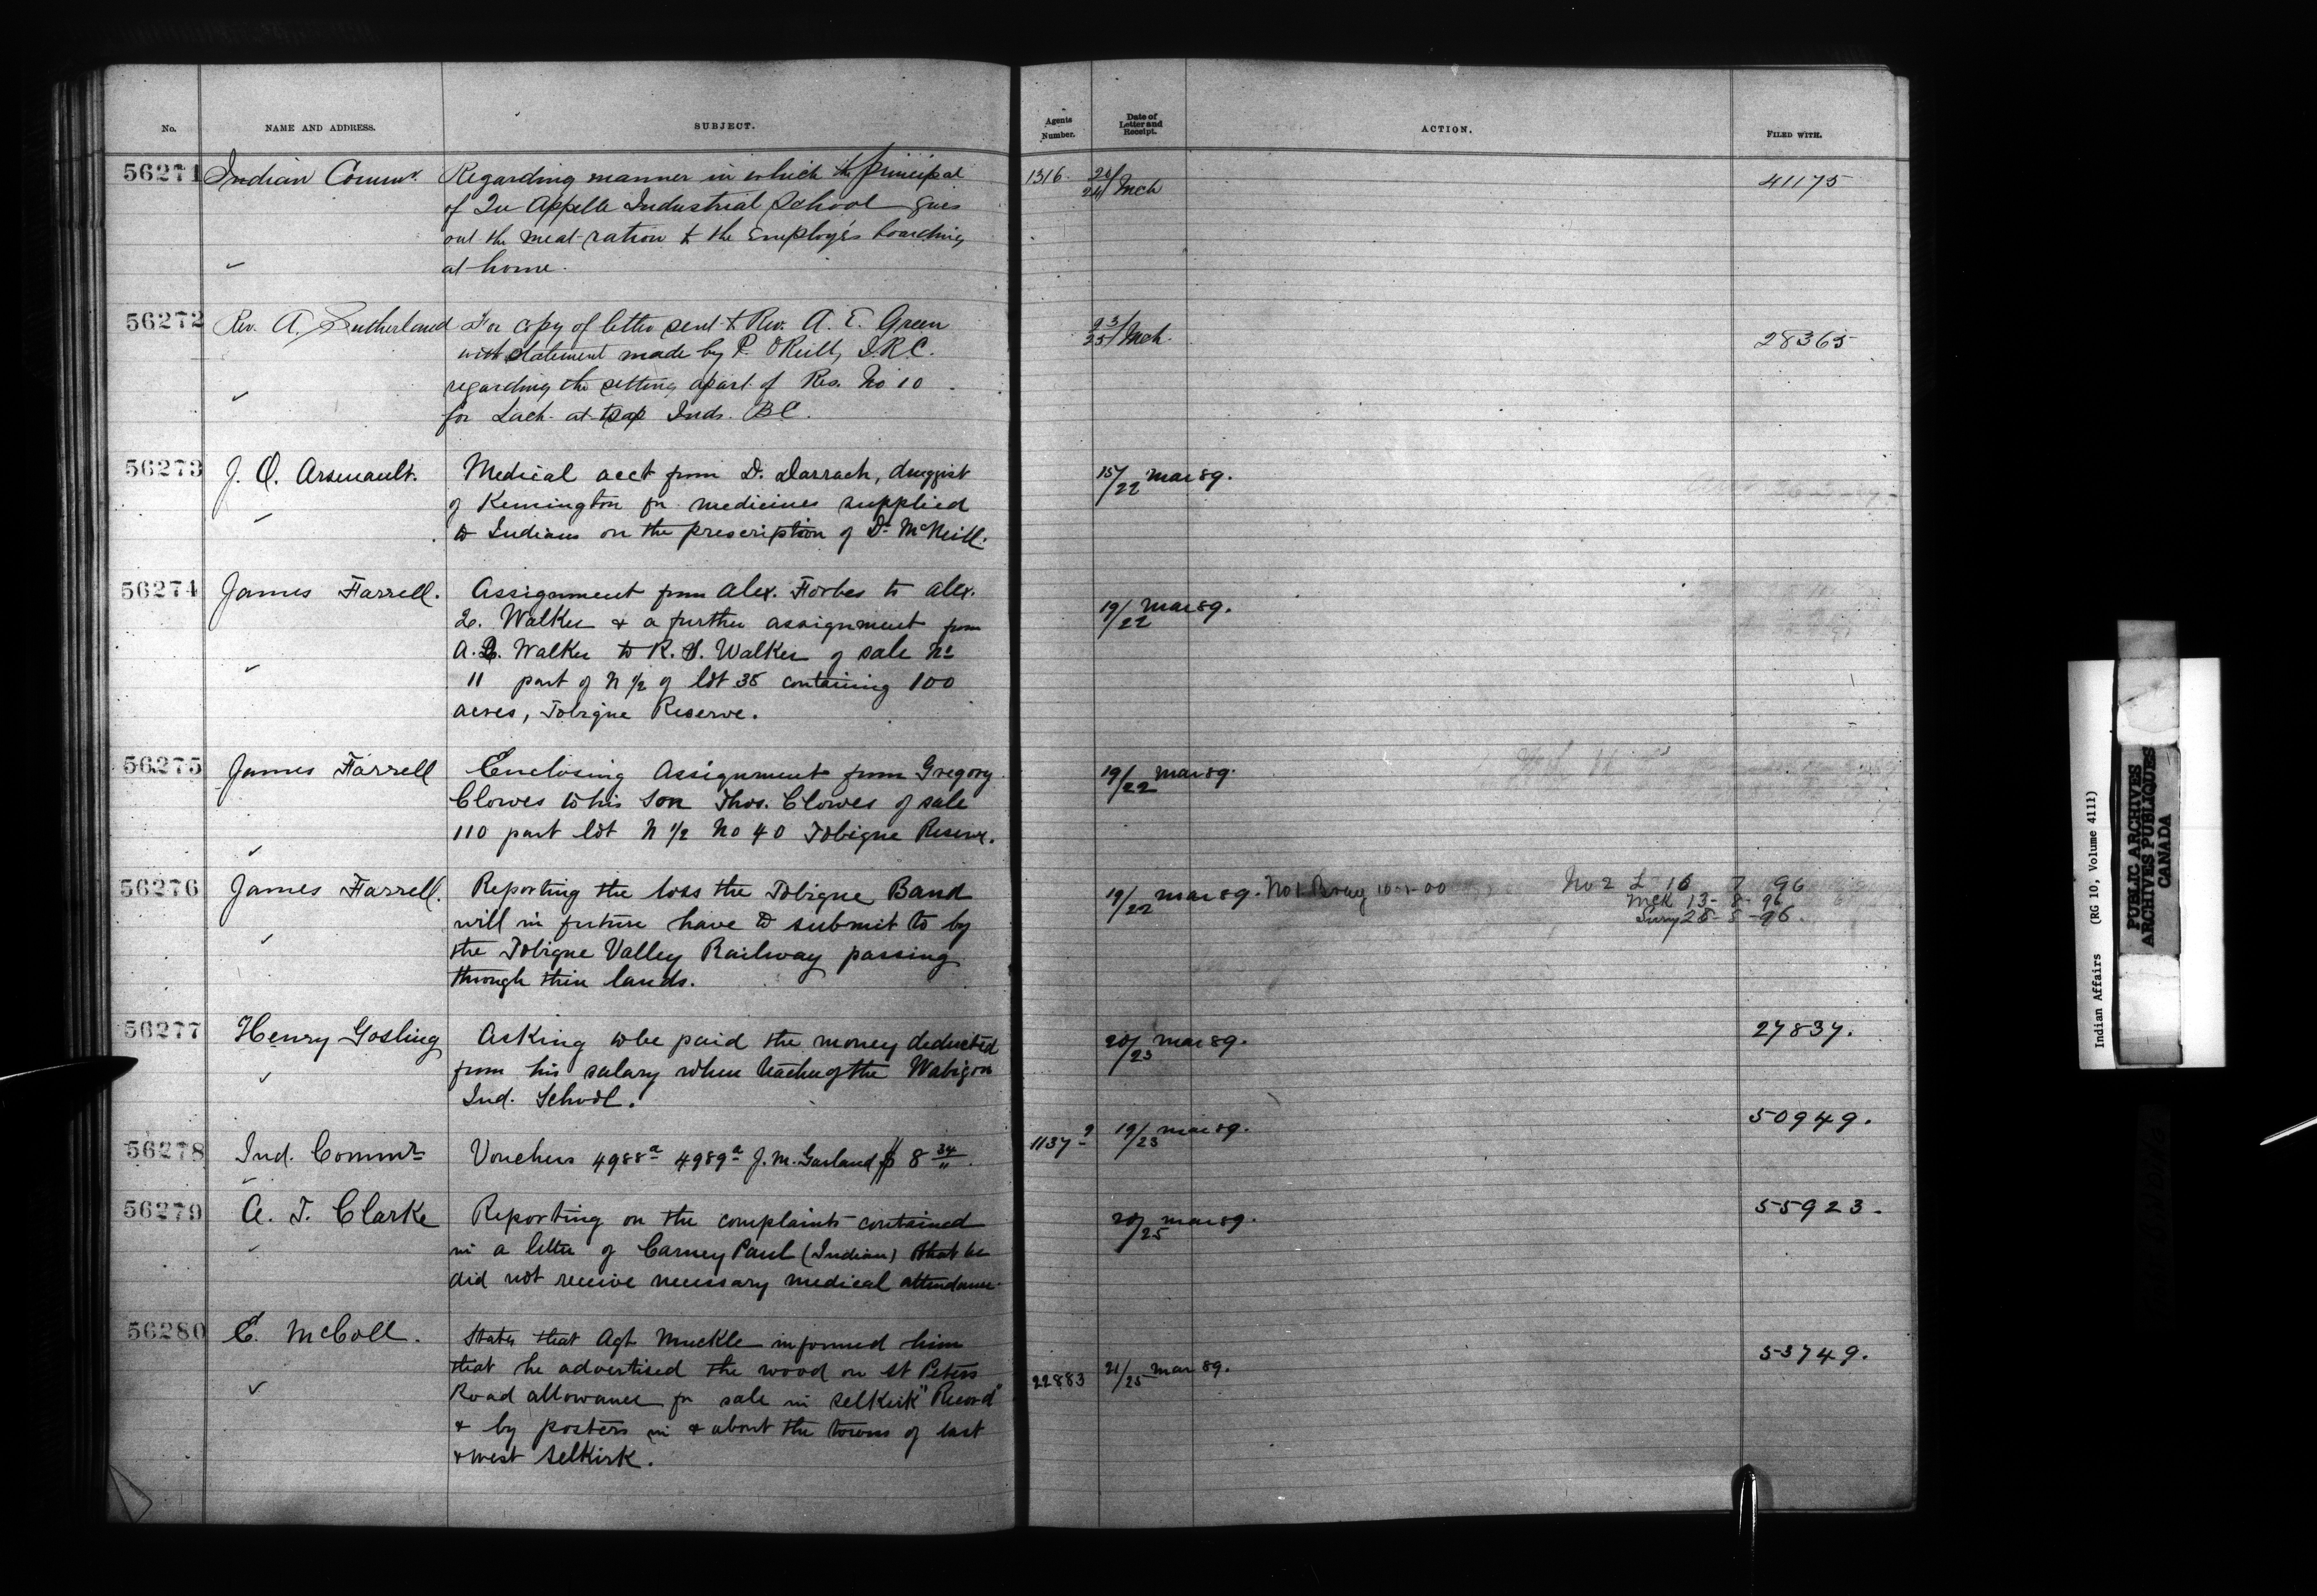 No. NAME AND ADDRESS. SUBJECT. Agents Number. Date of Letter and Receipt. ACTION. FILED WITH.
56271 Indian Commr. Regarding manner in which the principal 1316 Mch 41175
of Qu Appelle Industrial School gives
out the meat-ration to the Employés boarding
at home.
56272 Rev. A. Sutherland For copy of letter sent to Rev. A. E. Green 23/25 Mch. 28365
with statement made by P. O'Reilly I.R.C.
regarding the setting apart of Res. No 10
for Lach-at-tsap Inds. B.C.
56273 J. O. Arsenault. Medical acct from D. Darrach, druggist 15/22 Mar 89.
of Kensington for medicines supplied
to Indians on the prescription of Dr McNeill.
56274 James Farrell. Assignment from Alex. Forbes to Alex. 19/22 Mar 89.
Walker & a further assignment from
A. Walker to R. Walker of sale No
11 part of N 1/2 of lot 35 containing 100
acres, Tobique Reserve.
56275 James Farrell Enclosing Assignment from Gregory 19/22 Mar 89.
Clowes to his son Thos. Clowes of sale
110 part lot N 1/2 No 40 Tobique Reserve.
56276 James Farrell. Reporting the loss the Tobique Band 19/22 Mar 89. No 1 Bray No 2 L 16 7 96
McK 13-8-96
will in future have to submit to by
the Tobique Valley Railway passing
through their lands.
56277 Henry Gosling Asking to be paid the money deducted 20/23 Mar 89. 27837.
from his salary when teacher of the Wabigon
Ind. School.
56278 Ind. Commr Vouchers 4988a 4989a J. M. Garland $8 34/" 1137-9 19/23 Mar 89. 50949.
56279 A. T. Clarke Reporting on the complaints contained 20/25 Mar 89. 55923.
in a letter of Carney Paul (Indian) that he
did not receive necessary medical attendance.
56280 E. McColl. States that Agt Muckle informed him 53749.
that he advertised the wood on St Peters 22883 21/25 Mar 89.
Road allowance for sale in Selkirk "Record"
& by posters in & about the towns of East
& West Selkirk.
Indian Affairs (RG 10, Volume 4111)
PUBLIC ARCHIVES
ARCHIVES PUBLIQUES
CANADA